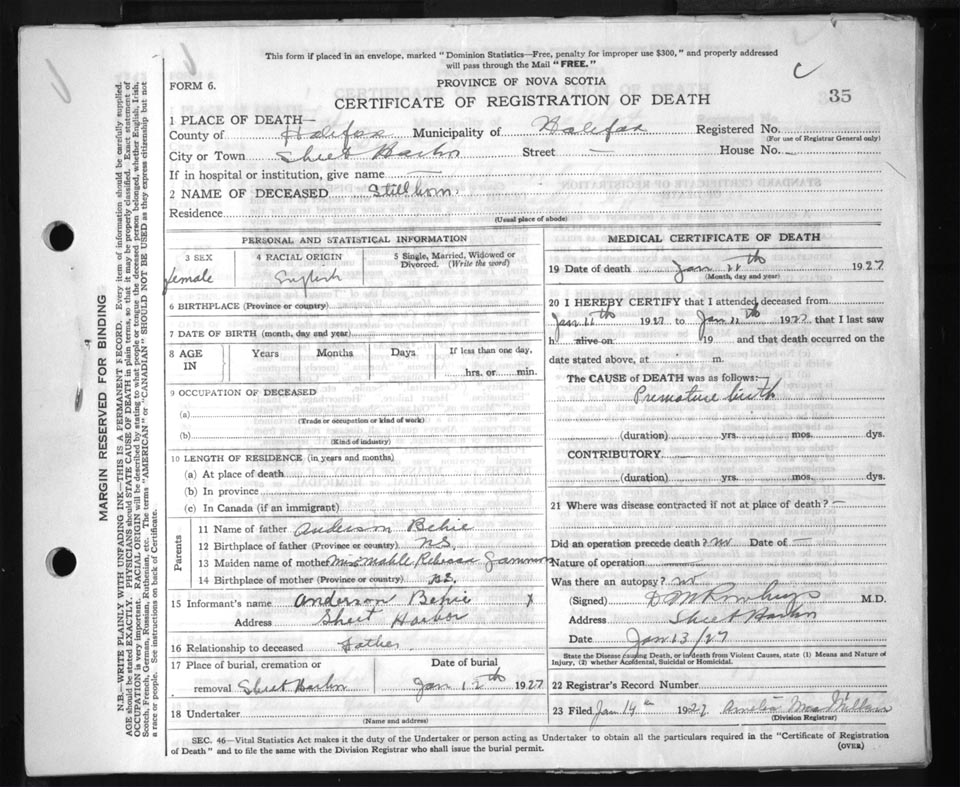 This form if placed in an envelope, marked "Dominion Statistics—Free, penalty for improper use $300," and properly addressed
will pass through the Mail "FREE."
PROVINCE OF NOVA SCOTIA
FORM 6.
CERTIFICATE OF REGISTRATION OF DEATH
35
1 PLACE OF DEATH—
County of Halifax Municipality of Halifax Registered No.
(For use of Registrar General only)
City or Town Sheet Harbor Street — House No.
If in hospital or institution, give name —
2 NAME OF DECEASED Stillborn
Residence
(Usual place of abode)
PERSONAL AND STATISTICAL INFORMATION
3 SEX 4 RACIAL ORIGIN 5 Single, Married, Widowed or Divorced. (Write the word)
female English
6 BIRTHPLACE (Province or country)
7 DATE OF BIRTH (month, day and year)
8 AGE IN Years Months Days If less than one day,
hrs. or min.
9 OCCUPATION OF DECEASED
(a)
(Trade or occupation or kind of work)
(b)
(Kind of industry)
10 LENGTH OF RESIDENCE (in years and months)
(a) At place of death
(b) In province
(c) In Canada (if an immigrant)
Parents
11 Name of father Anderson Behie
12 Birthplace of father (Province or country) N.S.
13 Maiden name of mother Miss Mabell Rebecca Gammon
14 Birthplace of mother (Province or country) N.S.
15 Informant's name Anderson Behie X
Address Sheet Harbor
16 Relationship to deceased Father
17 Place of burial, cremation or Date of burial
removal Sheet Harbor Jan 12th 1927
18 Undertaker
(Name and address)
MEDICAL CERTIFICATE OF DEATH
19 Date of death Jan 11th 1927
(Month, day and year)
20 I HEREBY CERTIFY that I attended deceased from
Jan 11th 1927 to Jan 11th 1927 that I last saw
h alive on 19 and that death occurred on the
date stated above, at m.
The CAUSE of DEATH was as follows:—
Premature birth
(duration) yrs. mos. dys.
CONTRIBUTORY
(duration) yrs. mos. dys.
21 Where was disease contracted if not at place of death? —
Did an operation precede death? no Date of —
Nature of operation
Was there an autopsy? no
(Signed) M.D.
Address Sheet Harbor
Date Jan 13/27
State the Disease causing Death, or in death from Violent Causes, state (1) Means and Nature of
Injury, (2) whether Accidental, Suicidal or Homicidal.
22 Registrar's Record Number
23 Filed Jan 14th 1927 Amelia MacMillan
(Division Registrar)
SEC. 46—Vital Statistics Act makes it the duty of the Undertaker or person acting as Undertaker to obtain all the particulars required in the "Certificate of Registration
of Death" and to file the same with the Division Registrar who shall issue the burial permit.
(OVER)
MARGIN RESERVED FOR BINDING
N.B.—WRITE PLAINLY WITH UNFADING INK—THIS IS A PERMANENT RECORD. Every item of information should be carefully supplied.
AGE should be stated EXACTLY. PHYSICIANS should STATE CAUSE OF DEATH in plain terms, so that it may be properly classified. Exact statement of
OCCUPATION is very important. RACIAL ORIGIN will be described by stating to what people or tongue the deceased person belonged, whether English, Irish,
Scotch, French, German, Russian, Ruthenian, etc. The terms "AMERICAN" or "CANADIAN" SHOULD NOT BE USED as they express citizenship but not
a race or people. See instructions on back of Certificate.